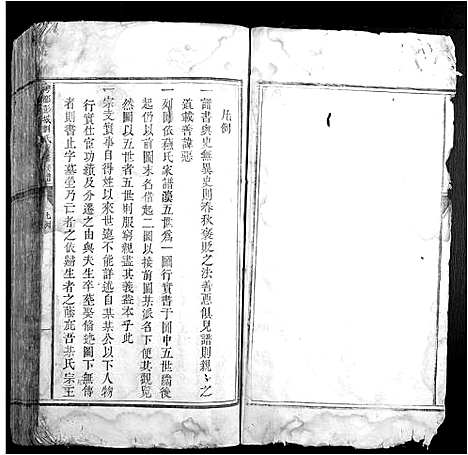 凡例
一譜書與史無異史則春秋褒貶之法善惡俱見譜則親親之
道載善諱惡
一列圖依蘇氏家譜渶五世爲一圖行實書于圖中五世續後
起仍以前圖末名借起二圖以接前圖某派名下便其觀覧
然圖以五世者五世則服窮親盡其義盖本乎此
一宗支實事自得姓以來世遠不能詳述自某某公以下人物
行實仕宦功績及分遷之由與夫生卒墓娶俻述圖下無傳
者則書止字墓塋乃亡者之依歸生者之蔭庇吾某氏宗王
彭城劉氏
凡例